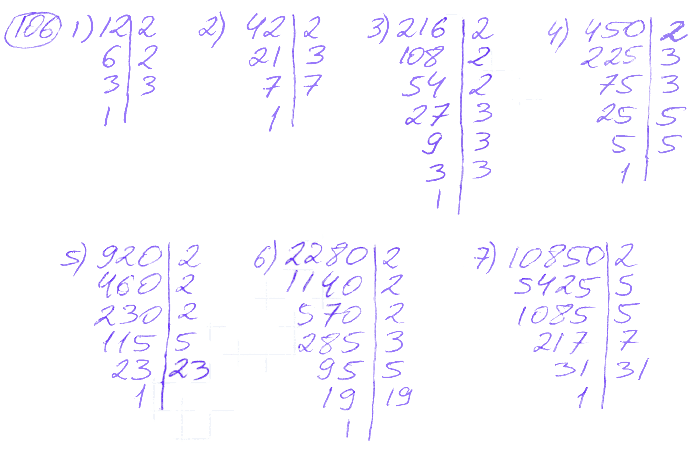 106 1) 12 | 2 2) 42 | 2 3) 216 | 2 4) 450 | 2
6 | 2 21 | 3 108 | 2 225 | 3
3 | 3 7 | 7 54 | 2 75 | 3
1 | 1 | 27 | 3 25 | 5
9 | 3 5 | 5
3 | 3 1 |
1 |
5) 920 | 2 6) 2280 | 2 7) 10850 | 2
460 | 2 1140 | 2 5425 | 5
230 | 2 570 | 2 1085 | 5
115 | 5 285 | 3 217 | 7
23 | 23 95 | 5 31 | 31
1 | 19 | 19 1 |
1 |